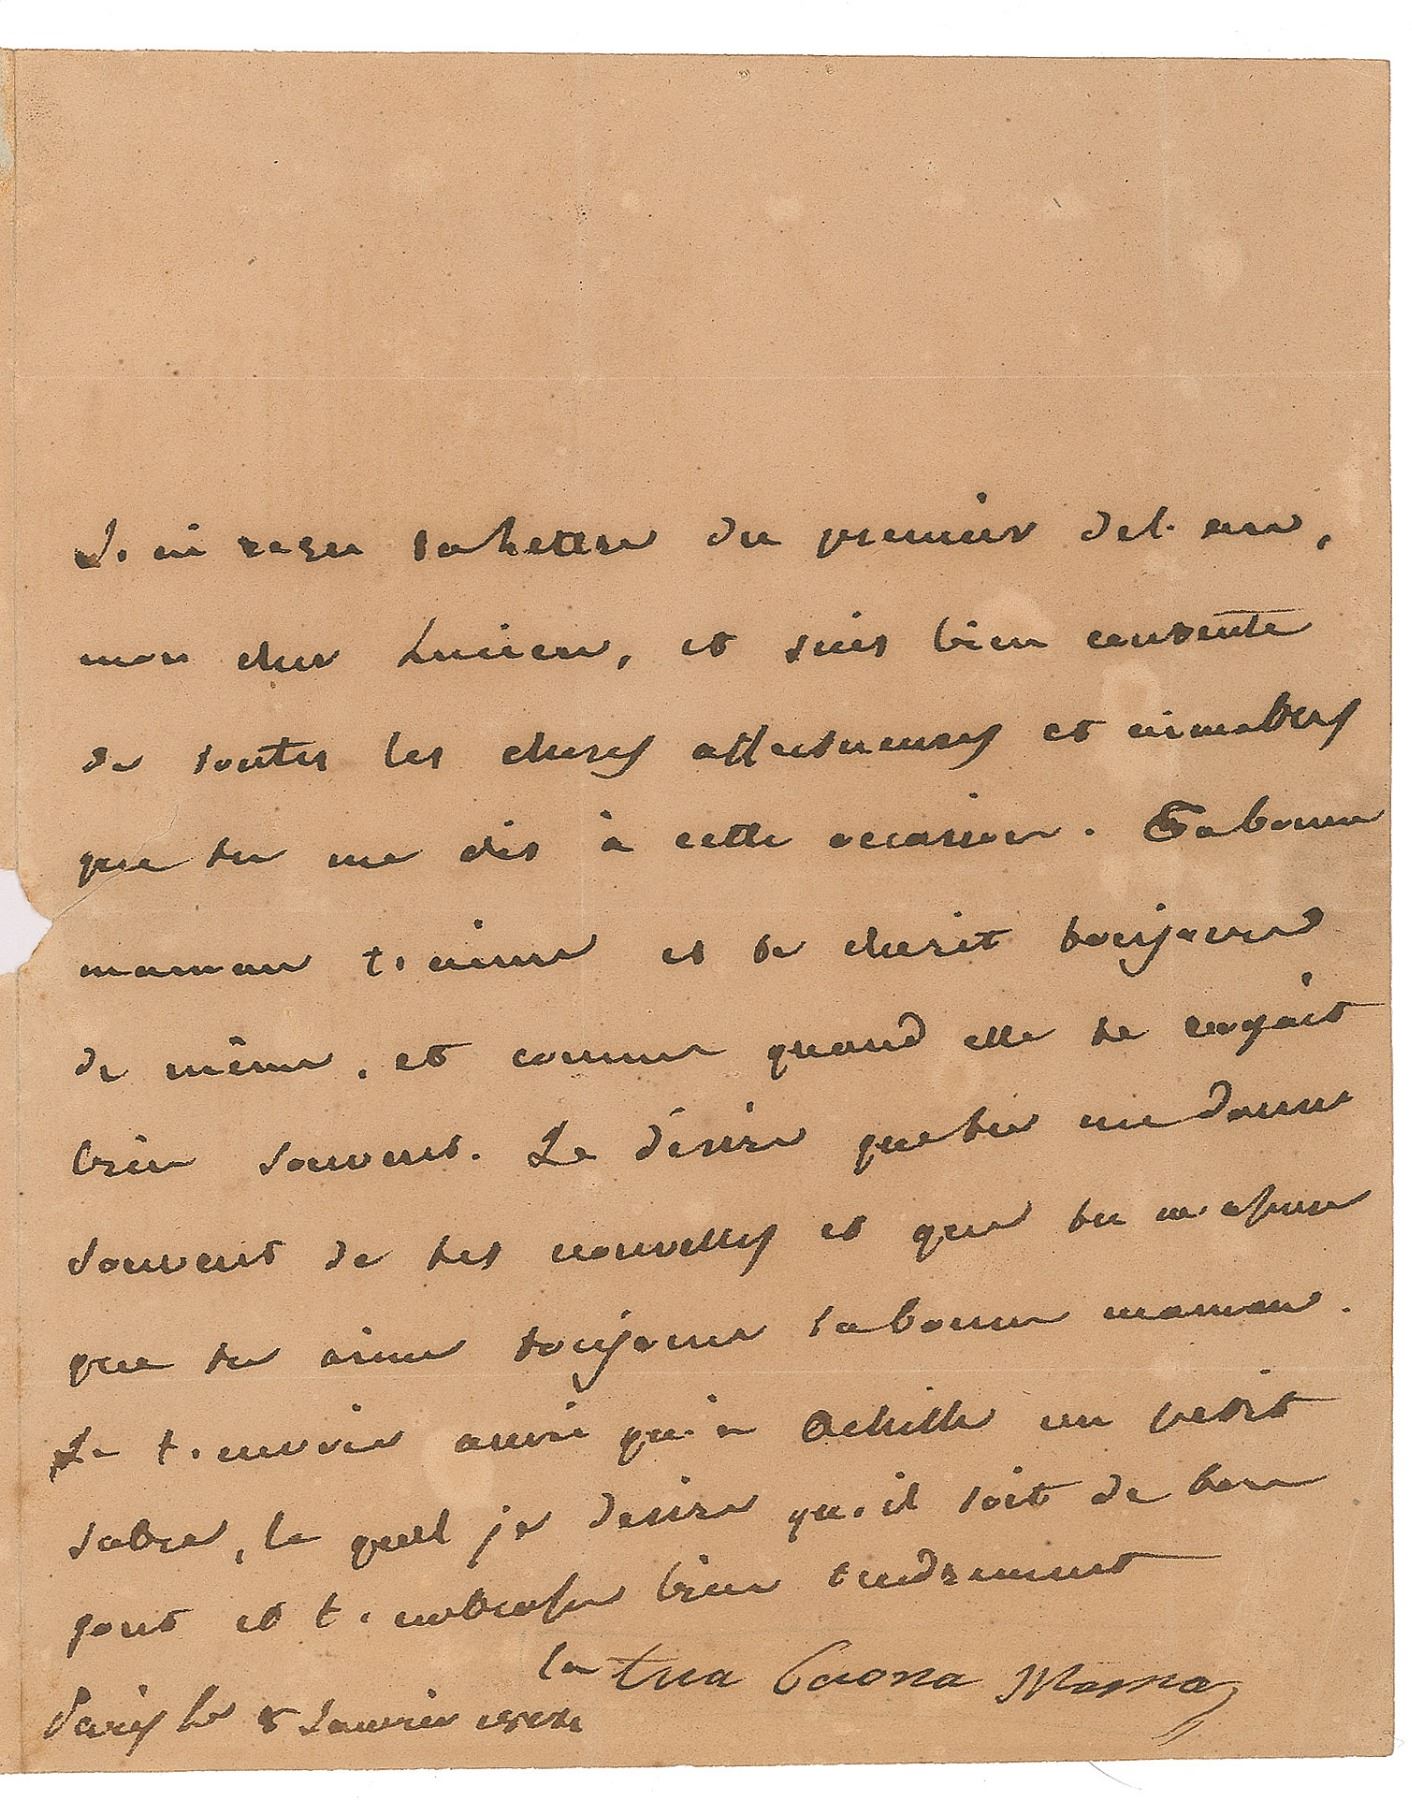 J'ai reçu ta lettre du premier del'an,
mon cher Lucien, et suis bien contente
de toutes les choses affectueuses et aimables
que tu me dis à cette occasion. Ta bonne
maman t'aime et te cherit toujours
de même, et comme quand elle te voyait
bien souvent. Je désire que tu me donne
souvent de tes nouvelles et que tu m'assure
que tu aime toujours ta bonne maman.
Je t'envoie ainsi qu'a Achille un petit
sabre, le quel je desire qu'il soit de bon
gout et t'embrasse bien tendrement
la tua buona Mama
Paris le 8 Janvier